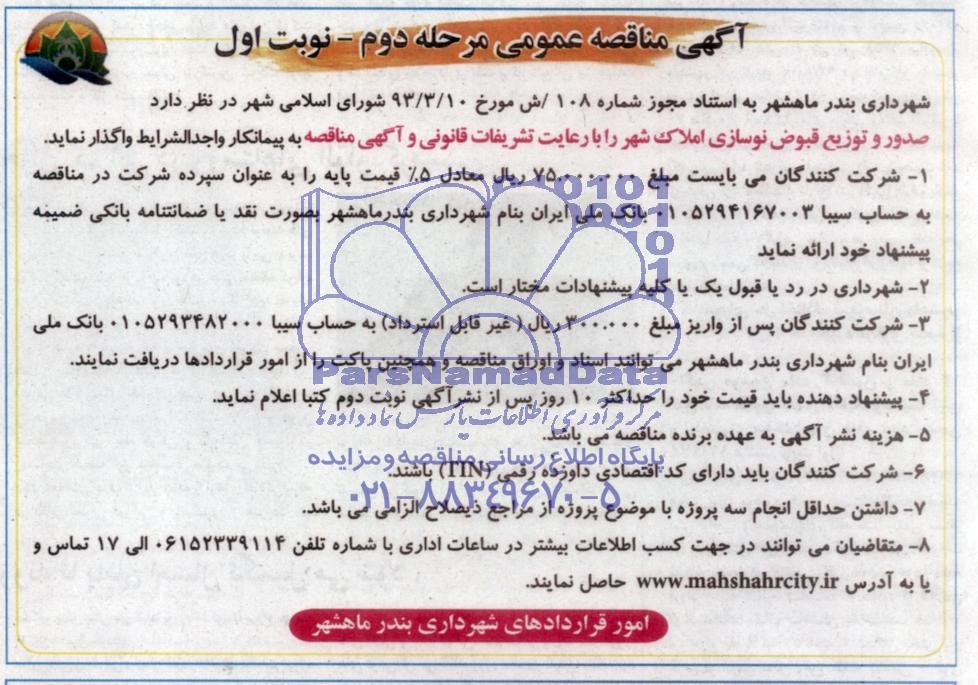 آگهی مناقصه عمومی مرحله دوم - نوبت اول
شهرداری بندر ماهشهر به استناد مجوز شماره ۱۰۸ /ش مورخ ۹۳/۳/۱۰ شورای اسلامی شهر در نظر دارد
صدور و توزیع قبوض نوسازی املاک شهر را با رعایت تشریفات قانونی و آگهی مناقصه به پیمانکار واجدالشرایط واگذار نماید.
۱- شرکت کنندگان می بایست مبلغ ۷۵.۰۰۰.۰۰۰ ریال معادل ۵٪ قیمت پایه را به عنوان سپرده شرکت در مناقصه
به حساب سیبا ۰۱۰۵۲۹۴۱۶۷۰۰۳ بانک ملی ایران بنام شهرداری بندرماهشهر بصورت نقد یا ضمانتنامه بانکی ضمیمه
پیشنهاد خود ارائه نماید
۲- شهرداری در رد یا قبول یک یا کلیه پیشنهادات مختار است.
۳- شرکت کنندگان پس از واریز مبلغ ۳۰۰.۰۰۰ ریال ( غیر قابل استرداد) به حساب سیبا ۰۱۰۵۲۹۳۴۸۲۰۰۰ بانک ملی
ایران بنام شهرداری بندر ماهشهر می توانند اسناد و اوراق مناقصه و همچنین پاکت را از امور قراردادها دریافت نمایند.
ParsNamadData
۴- پیشنهاد دهنده باید قیمت خود را حداکثر ۱۰ روز پس از نشر آگهی نوبت دوم کتبا اعلام نماید.
مرکز فرآوری اطلاعات پارس نماد داده ها
۵- هزینه نشر آگهی به عهده برنده مناقصه می باشد.
پایگاه اطلاع رسانی مناقصه و مزایده
۶- شرکت کنندگان باید دارای کد اقتصادی دوازده رقمی (TIN) باشند.
۰۲۱-۸۸۳۴۹۶۷۰-۵
۷- داشتن حداقل انجام سه پروژه با موضوع پروژه از مراجع ذیصلاح الزامی می باشد.
۸- متقاضیان می توانند در جهت کسب اطلاعات بیشتر در ساعات اداری با شماره تلفن ۰۶۱۵۲۳۳۹۱۱۴ الی ۱۷ تماس و
یا به آدرس www.mahshahrcity.ir حاصل نمایند.
امور قراردادهای شهرداری بندر ماهشهر